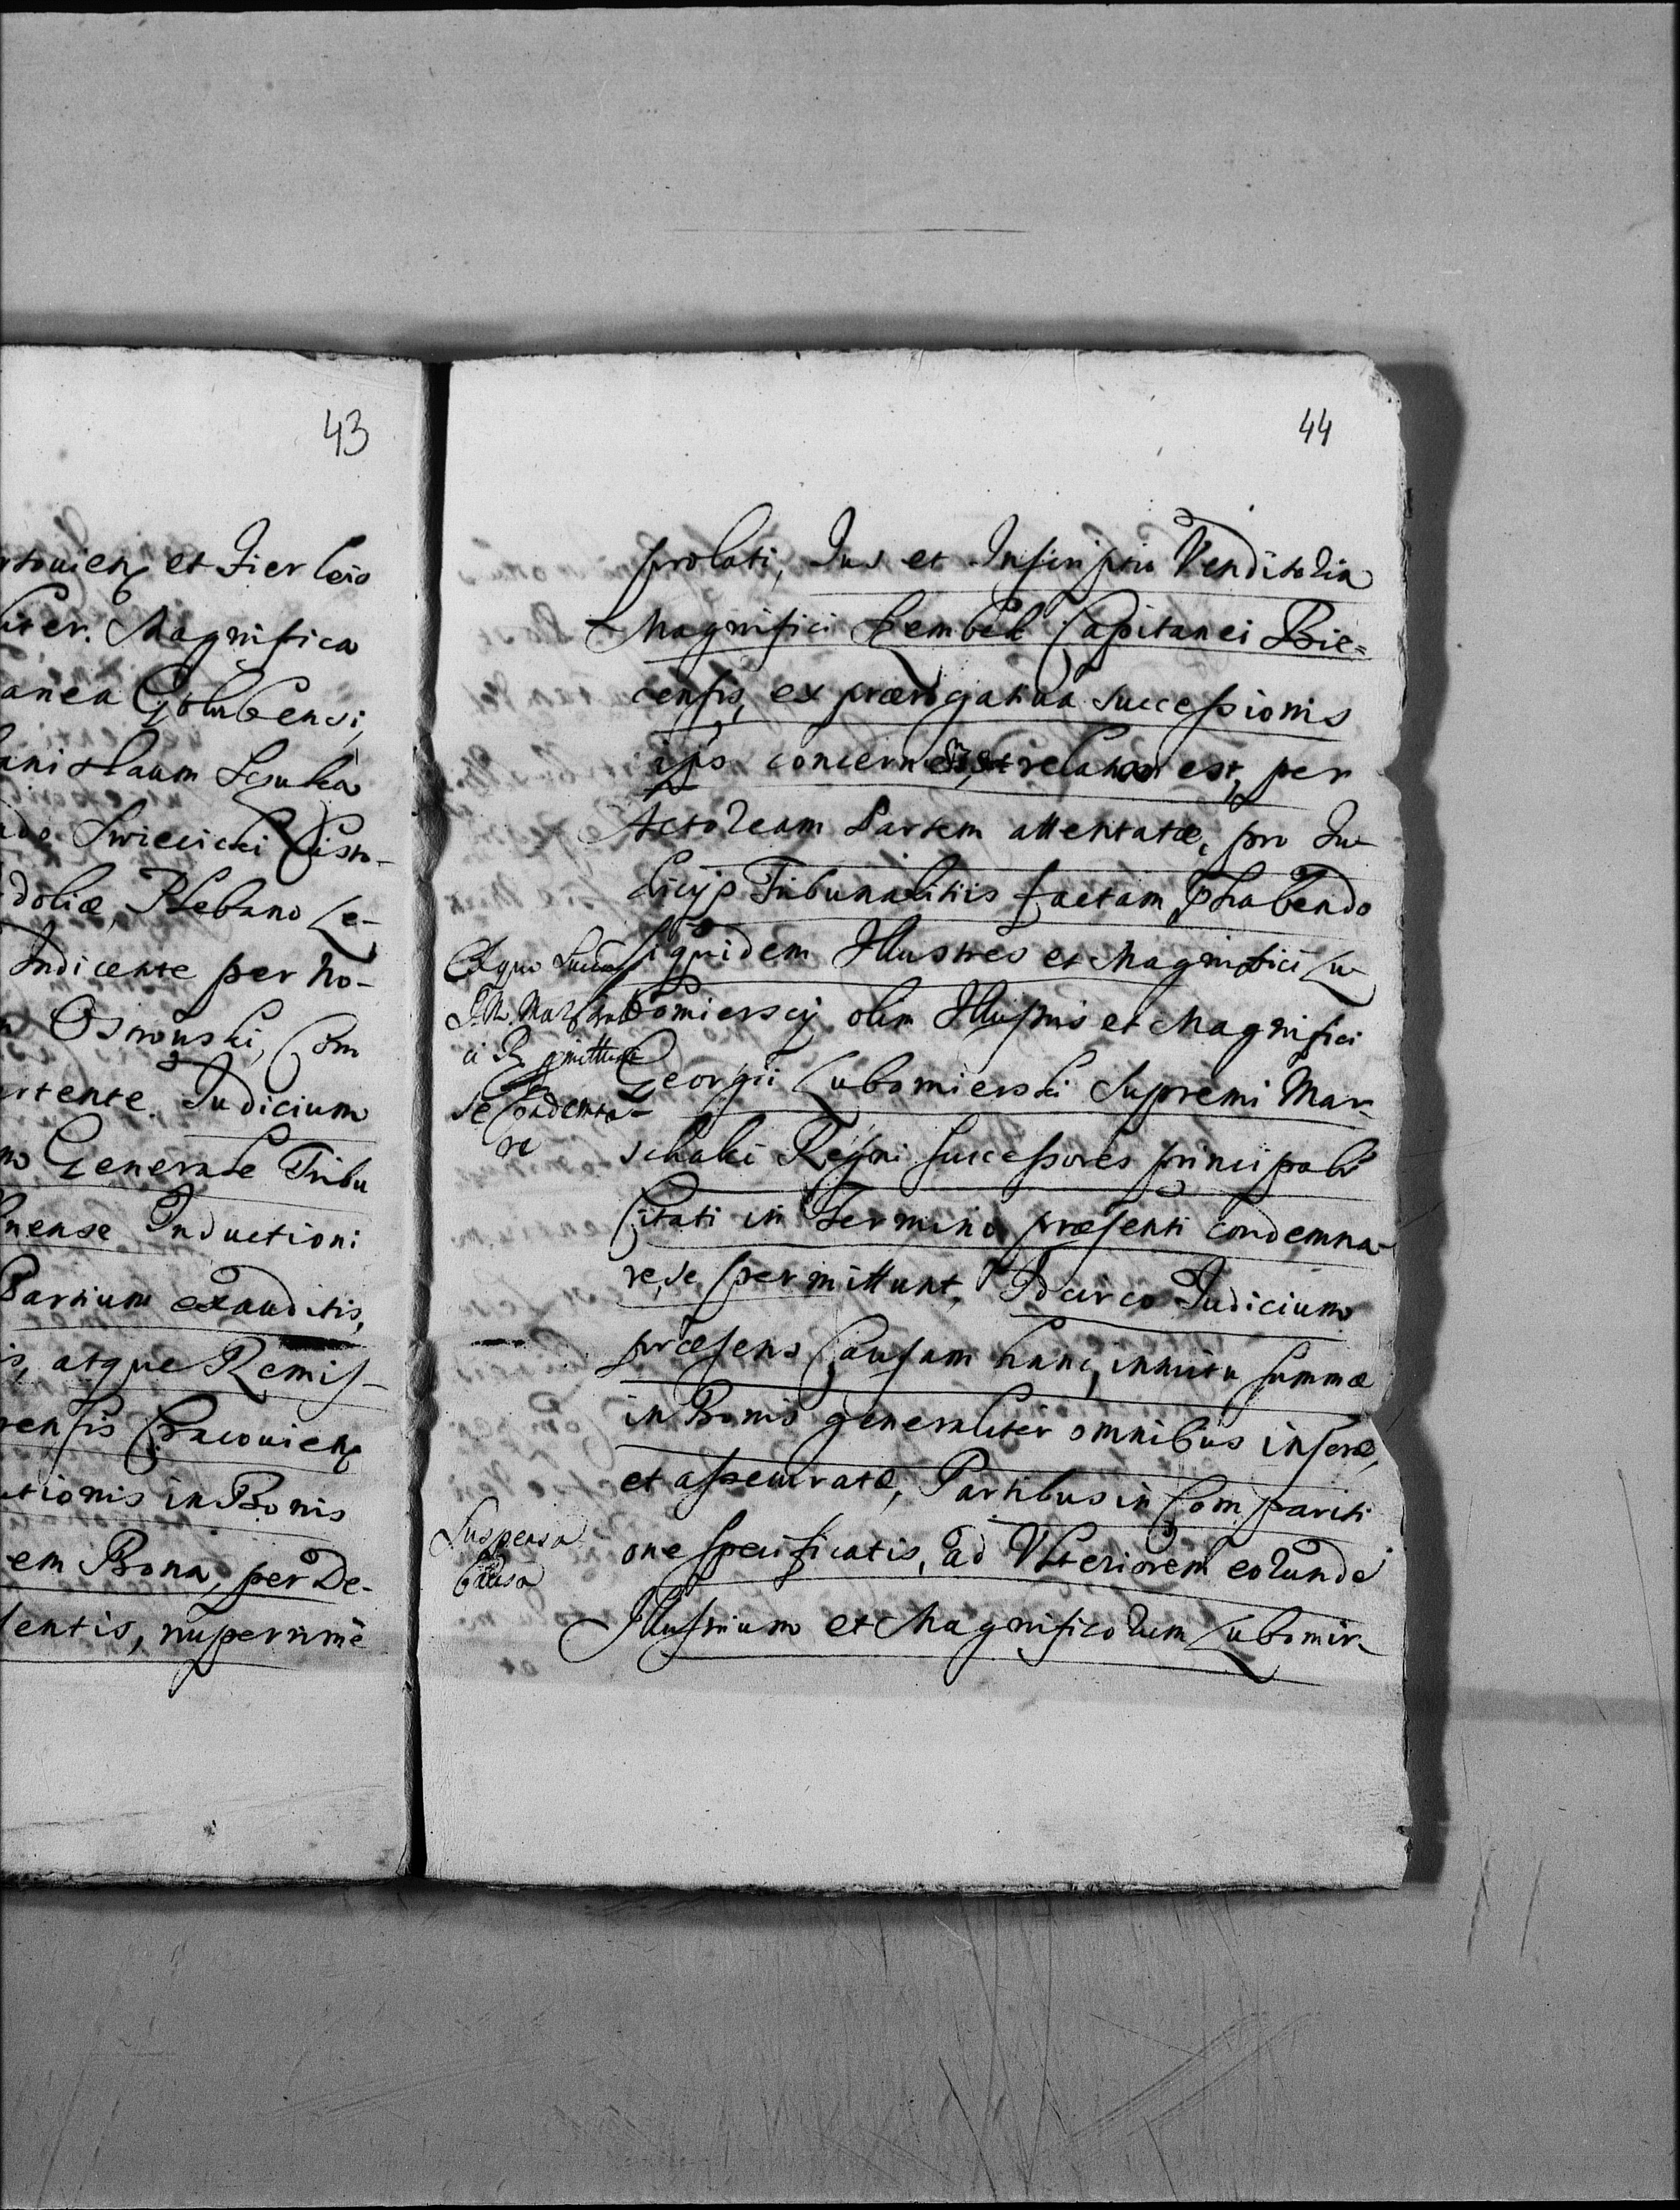 43
et Fierleio
Magnifica
anea Golubensi,
anislaum
Swiecicki Custo-
doliæ, Plebano Le-
Indicente per No-
Osnowski, Com
rtente. Judicium
Generale Tribu
nense Inductioni
Partium exauditis,
s, atque Remis-
rensis Cracoviens
tionis in Bonis
em Bona, per De-
sentis, nuperrimè
44
prolati, Jus et Inscriptio Venditoria
Magnifici Sembek Capitanei Bie=
censis, ex prærogativa successionis
ipsos est, per
Actoream Partem attentatæ, pro Ju-
dicijs Tribunalitiis factam, habendo
Siquidem Illustres et Magnifici Lu-
bomierscy olim Illustris et Magnifici
Georgii Lubomierski Supremi Mar-
schalci Regni successores principali
Citati in Termino præsenti condemna-
re, se permittunt, Idcirco Judicium
præsens Causam hanc, intuitu summæ
in Bonis generaliter omnibus inscræ,
et assecuratæ, Partibus in Compariti
one specificatis, ad Ulteriorem eorunde
Illustrium et Magnificorum Lubomir-
Ex quo
se Condemna-
re
Suspensa
Causa